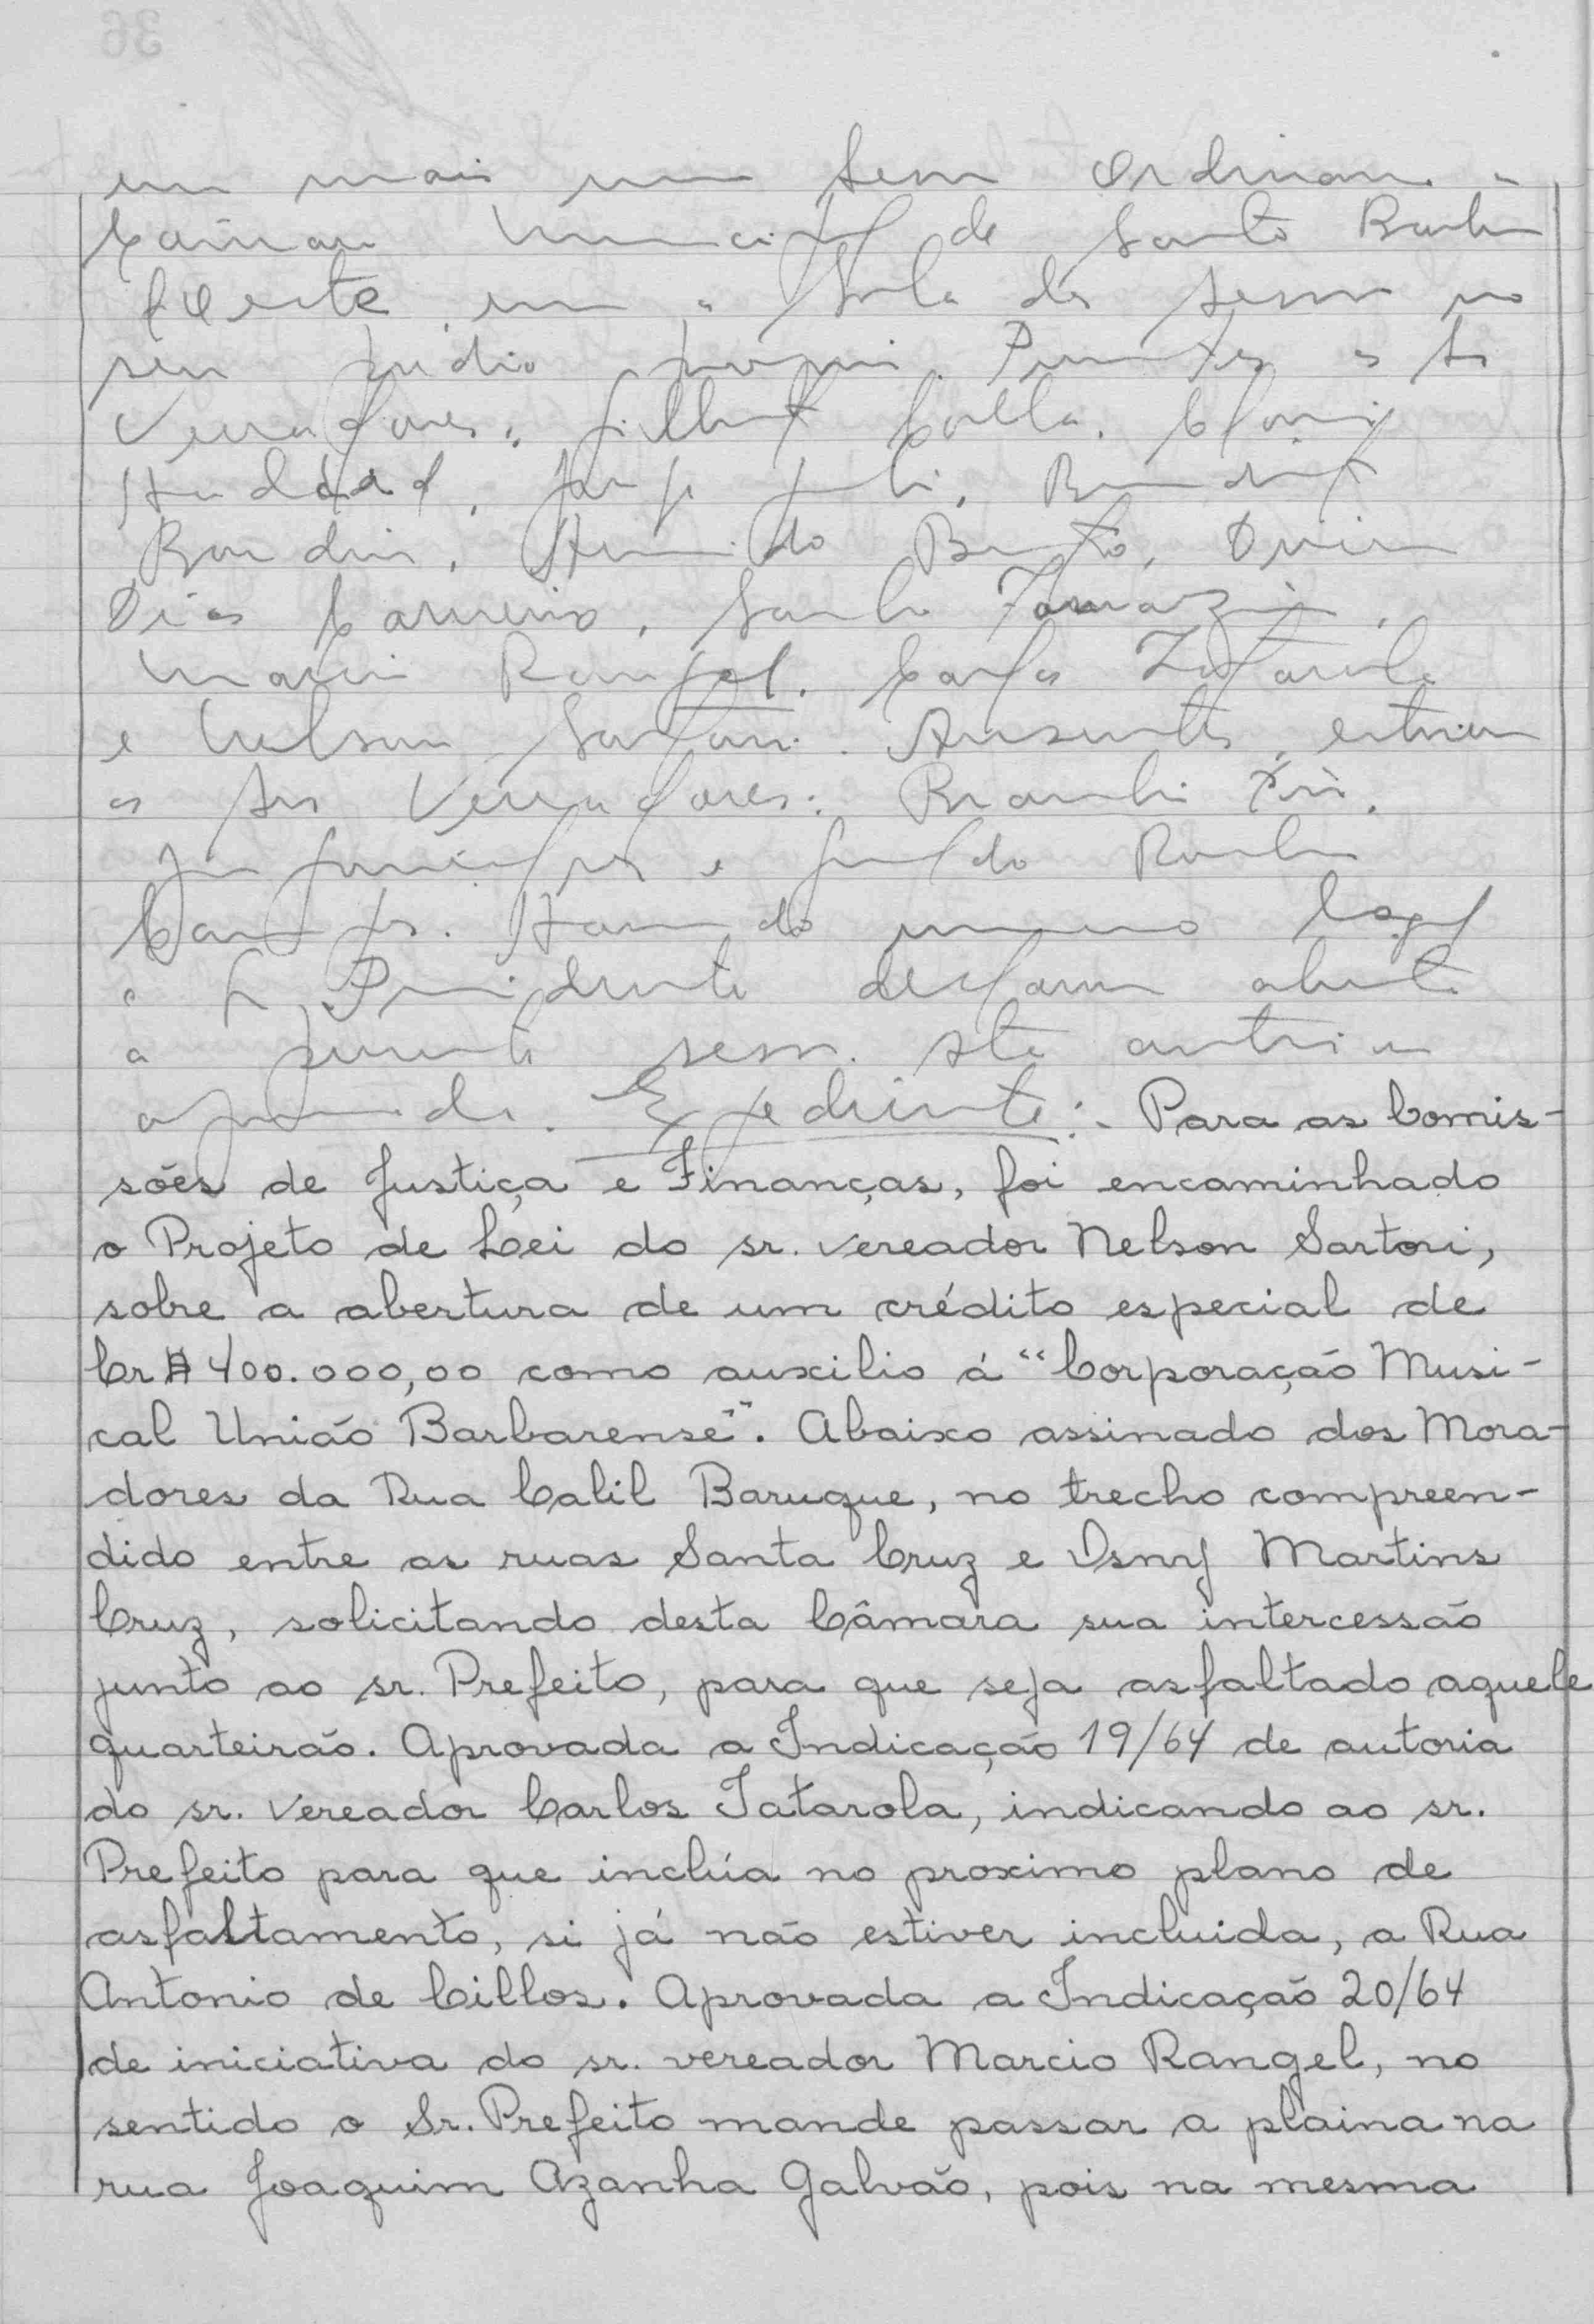 em mais uma sessão Ordinaria a
Câmara Municipal de Santa Barbara
d'Oeste, em a Sala das sessões no
seu prédio proprio. Presentes os Srs
Vereadores:
Haddad, Benedito
Bento,
Dias Carneiro,
Rangel. Carlos Tatarola
e Nelson Sartori. Ausentes, estiveram
os Srs Vereadores:
e Geraldo Rocha
Campos. Havendo numero legal
o Sr. Presidente declarou aberta
a presente sessão. Ata anterior
aprovada. Expediente:- Para as Comis-
sões de Justiça e Finanças, foi encaminhado
o Projeto de Lei do sr. vereador Nelson Sartori,
sobre a abertura de um crédito especial de
Cr$ 400.000,00 como auxilio á "Corporação Musi-
cal União Barbarense". Abaixo assinado dos Mora-
dores da Rua Calil Baruque, no trecho compreen-
dido entre as ruas Santa Cruz e Osny Martins
Cruz, solicitando desta Câmara sua intercessão
junto ao sr. Prefeito, para que seja asfaltado aquele
quarteirão. Aprovada a Indicação 19/64 de autoria
do sr. vereador Carlos Tatarola, indicando ao sr.
Prefeito para que inclúa no proximo plano de
asfaltamento, si já não estiver incluida, a Rua
Antonio de Cillos. Aprovada a Indicação 20/64
de iniciativa do sr. vereador Marcio Rangel, no
sentido o Sr. Prefeito mande passar a plaina na
rua Joaquim Azanha Galvão, pois na mesma